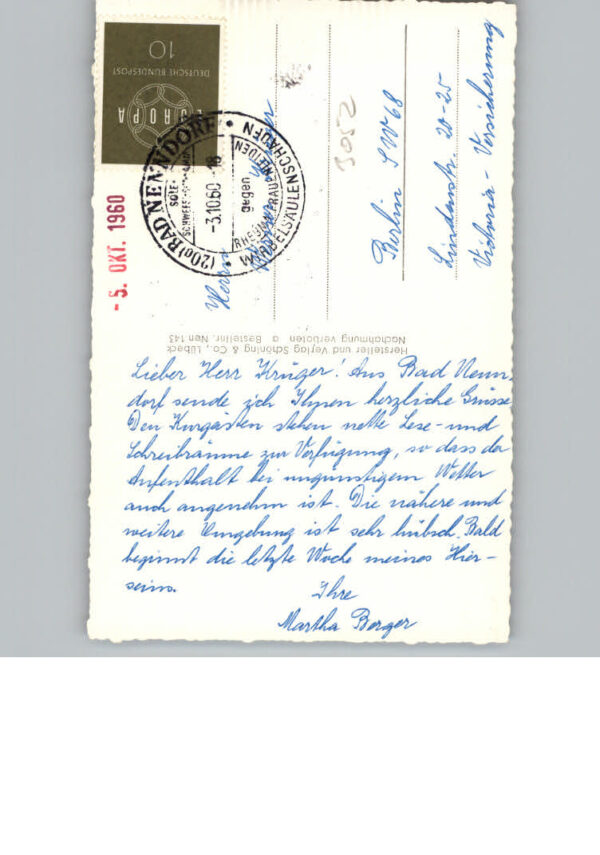 10
DEUTSCHE BUNDESPOST
EUROPA
(20a) BAD NENNDORF
-3.10.60.-16
gegen
RHEUMA/FRAUENLEIDEN
WIRBELSÄULENSCHÄDEN
- 5. OKT. 1960
3052
Herrn
Berlin SW 68
Lindenstr. 20-25
Victoria - Versicherung
Hersteller und Verlag Schöning & Co., Lübeck
Nachahmung verboten a Bestellnr. Nen 143
Lieber Herr Krüger! Aus Bad Nenn-
dorf sende ich Ihnen herzliche Grüsse
Den Kurgästen stehen nette Lese- und
Schreibräume zur Verfügung, so dass der
Aufenthalt bei ungünstigem Wetter
auch angenehm ist. Die nähere und
weitere Umgebung ist sehr hübsch. Bald
beginnt die letzte Woche meines Hier-
seins.
Ihre
Martha Berger